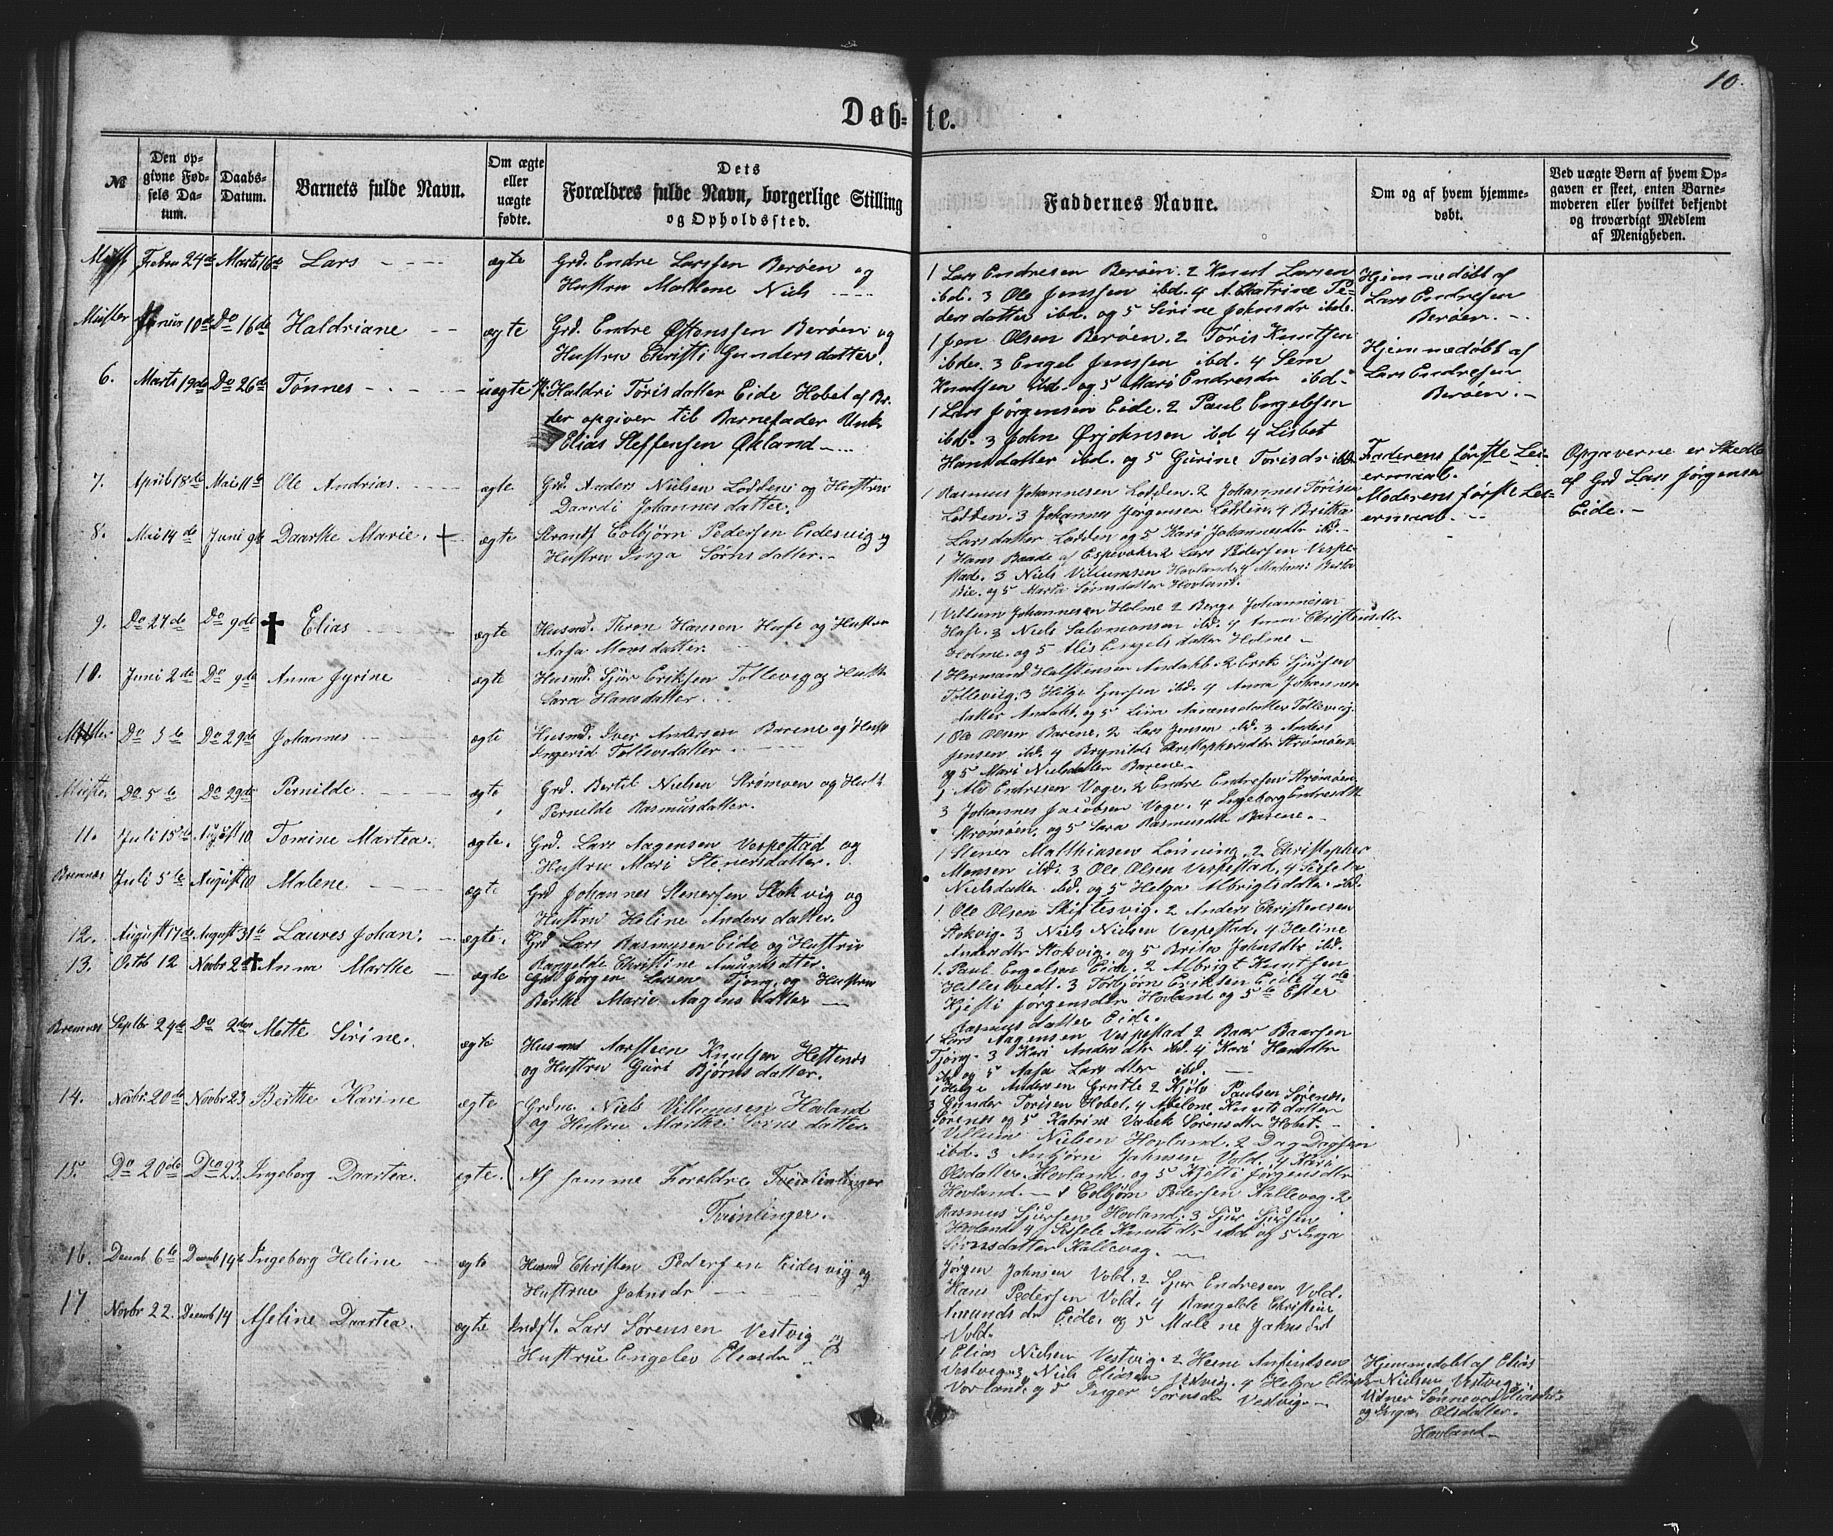 10.
Døb-te.
№
Den op-
givne Fød-
sels Da-
tum.
Daabs-
Datum.
Barnets fulde Navn.
Om ægte
eller
uægte
fødte.
Dets
Forældres fulde Navn, borgerlige Stilling
og Opholdssted.
Faddernes Navne.
Om og af hvem hjemme-
døbt.
Ved uægte Børn af hvem Op-
gaven er skeet, enten Barne-
moderen eller hvilket bekjendt
og troværdigt Medlem
af Menigheden.
Febru 24de Marts 16de Lars ægte Grd. Endre Larssen Berøen og
Hustru Malene Niels
1 Lars Endresen Berøen. 2 Knut Larsen
ibd. 3 Ole Jenssen ibd. 4 A. Chatrine Pe-
dersdatter ibd. og 5 Sirine Johnsdr ibd.
Hjemmedøbt af
Lars Endresen
Berøen.
Møster Januar 10de Do 16de Haldriane ægte Grd. Endre Østenssen Berøen og
Hustru Christi Gundersdatter.
1 Jon Olsen Berøen. 2 Tøris Knutsen
ibd. 3 Engel Jenssen ibd. 4 Sem
Knutsen ibd. og 5 Mari Endresdr ibd.
Hjemmedøbt af
Lars Endresen
Berøen.
6. Marts 19de Do 26de Tønnes uægte Haldri Torisdatter Eide Hobet af
der opgiver til Barnefader Unk.
Elias Steffensen Økland
1 Lars Jørgensen Eide. 2 Paul Engelsen
ibd. 3 John Ørjohnsen ibd 4 Lisbet
Hansdatter ibd. og 5 Gurine Torisdr ibd.
Faderens første Lei-
ermaal.
Moderens første Lei-
ermaal.
Opgaverne er Skedte
af Grd Lars Jørgensen
Eide.
7. April 18de Mai 11te Ole Andrias ægte Grd. Anders Nielsen Lodden og Hustru
Daardi Johannesdatter.
1 Rasmus Johannesen Lodden. 2 Johannes Torisen
Lodden. 3 Johannes Jørgensen Lodden. 4 Britha
Larsdatter Lodden og 5 Kari Johannesdtr ibd.
8. Mai 14de Juni 9de Daarthe Marie. + ægte Strands Colbjørn Pedersen Eidesvig og
Hustru Inga Sørnsdatter.
1 Hans Baade af Espevær. 2 Lars Pedersen Vespe-
stad. 3 Niels Villumsen Hovland. 4
og 5 Marta Sørnsdatter Hovland.
9. Do 27de Do 9de † Elias ægte Husmd. Thron Hansen Huse og Hustru
Aasa Monsdatter.
1 Villum Johannesen Holme 2 Børge Johannesen
Huse. 3 Niels Salomonsen ibd. 4 Anna Christensdtr
Holme. og 5 Engelsdatter Holme
10. Juni 2de Do 9de Anna Gyrine ægte Husmd. Sjur Eriksen Tollevig og Hust.
Sara Hansdatter.
1 Hermand Halstensen Andahl. 2 Erik Sjursen
Tollevig. 3 Helge ibd. 4 Anna Johannes
datter Andahl. og 5 datter Tollevig
Møster Do 5te Do 29de Johannes ægte Husmd. Iver Andersen Barene og Hust.
Ingerid Tollevsdatter
1 Ole Olsen Barene. 2 Lars Jensen ibd. 3 Anders
Jensen ibd. 4 Brynilde Christophersdtr Strømøen
og 5 Mari Nielsdatter Barene.
Møster Do 5te Do 29de Pernilde ægte Grd. Bertil Nielsen Strømøen og Hust.
Pernilde Rasmusdatter.
1 Endresen Voge. 2 Endre Endresen Strømøen.
3 Johannes Jacobsen Voge. 4 Ingeborg Endresdtr
Strømøen. og 5 Sara Rasmusdtr Barene.
11. Juli 15de August 10 Tomine Martea. ægte. Grd. Lars Aagensen Vespestad og
Hustru Mari Stenersdatter.
1 Stener Matthiasen Lønning. 2 Christopher
Monsen ibd. 3 Ole Olsen Vespestad. 4 Sissela
Nielsdatter ibd. og 5 Helga Albrigtsdatter ibd.
Bremnes Juli 5te August 10 Malene ægte Grd Johannes Stenersen Stokvig og
Hustru Heline Andersdatter.
1. Ole Olsen Skiftesvig. 2 Anders Christensen
Stokvig. 3 Niels Nielsen Vespestad. 4 Heline
Andersdtr Stokvig. og 5 Brita Johnsdtr ibd.
12. August 17de August 31te Laures Johan. ægte. Grd Lars Rasmusen Eide og Hustru
Rangelde Christine Amundsdatter.
1. Paul Engelsen Eide. 2 Albrigt Knutsen
Hillesvedt. 3 Torbjørn Eriksen Eide 4de
Kjesti Jørgensdtr Hovland og 5te Ester
Rasmusdatter Eide.
13. Octob 12 Novbr 2d † Anna Marthe ægte Grd Jørgen Larsen Tjong. og Hustru
Berthe Marie Aagensdatter
1 Lars Aagensen Vespestad 2 Baar Baarsen
Tjong. 3 Kari Andersdtr ibd. 4 Kari Hansdtr
ibd og 5 Aasa Larsdtter ibd.
Bremnes Septbr 24de Do 2den Mette Sirine. ægte Husmd Aarsteen Knutsen Hettenes
og Hustru Guri Bjørnsdatter.
1 Helge Andersen Gentle 2 Kjøln Paulsen Sørenes.
3 Gunder Torisen Hobet. 4 Abelone Knutsdatter
Sørenes og 5 Katrine Vabek Sørensdtr Hobet.
14. Novbr. 20de Novbr 23 Berthe Karine ægte Grdm. Niels Villumsen Hovland
og Hustru Marthe Sørnsdatter.
1 Villum Nielsen Hovland. 2 Dag Dagsen
ibd. 3 Anbjørn Johnsen Vold. 4 Kari
Olsdatter Hovland. og 5 Kjesti Jørgensdtr
Hovland.
15. Do 20de Do 23. Ingeborg Daartea. ægte. Af samme Forældre
Tvinlinger.
1 Colbjørn Pedersen Kallevog. 2
Rasmus Sjursen Hovland. 3 Sjur Sjursen
Hovland 4 Sissele Knutsdtr ibd og 5 Inga
Sørnsdatter Kallevog.
16. Decemb 6te Decemb 14de Ingeborg Heline ægte Husmd Christen Pedersen Eidesvig og
Hustrue Johnsdr
Jørgen Johnsen Vold. 2 Sjur Endresen Vold.
Hans Pedersen Vold. 4 Rangelde Christine
Amundsdtr Eide. og 5 Malene Johnsdtr
Vold.
17 Novbr 22. Decemb 14 Aseline Daartea. ægte Indst. Lars Sørensen Vestvig og
Hustrue Engelev Eliasdr
1 Elias Nielsen Vestvig. 2 Arfindsen
Vestvig 3. Niels Eliasen Vestvig. 4 Helga
Vorland. og 5 Inger Sørnsdr Vestvig.
Hjemmedøbt af Elias
Nielsen Vestvig
Vidner Sønneva
og Inga Olsdatter.
Hovland